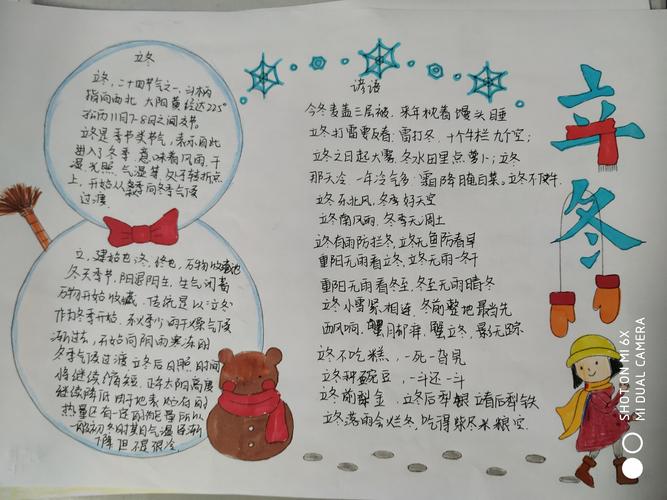 立冬
立冬，二十四节气之一，斗柄
指向西北，太阳黄经达225°
于公历11月7-8日之间交节。
立冬是季节类节气，表示自此
进入了冬季，意味着风雨、干
湿、光照、气温等，处于转折点
上，开始从秋季向冬季气候
过渡
立，建始也；冬，终也，万物收藏也
冬天季节，阳退阴生，生气闭蓄
万物开始收藏，传统是以"立冬"
作为冬季开始，秋季少雨干燥气候
渐过去，开始向阴雨寒冻的
冬季气候过渡立冬后日照时间
将继续缩短，正午太阳高度
继续降低由于地表贮存的
热量还有一定的能量所以
一般初冬时期气温逐渐
下降但不很冷
谚语
今冬麦盖三层被，来年枕着馒头睡
立冬打雷要反春；雷打冬，十个牛栏九个空；
立冬之日起大雾，冬水田里点萝卜；立冬
那天冷，一年冷气多；霜降腌白菜。立冬不使牛
立冬东北风，冬季好天空
立冬南风雨，冬季无凋土
立冬有雨防烂冬，立冬无鱼防春旱
重阳无雨看立冬，立冬无雨一冬干
重阳无雨看冬至，冬至无雨晴冬
立冬小雪紧相连，冬前整地最当先
西风响，蟹脚痒，蟹立冬，影无踪
立冬不吃糕，一死一旮旯
立冬种豌豆，一斗还一斗
立冬前犁金，立冬后犁银，立春后犁铁
立冬落雨会烂冬，吃得柴尽米粮空
立冬
SHOT ON MI 6X
MI DUAL CAMERA